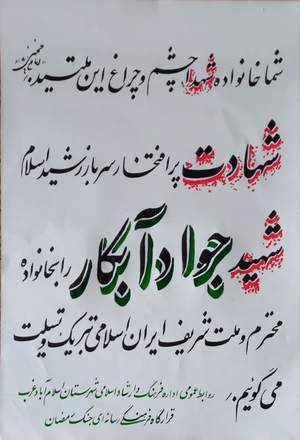 شما خانواده شهدا چشم و چراغ این ملتید. «امام خمینی»
شهادت پر افتخار سرباز رشید اسلام
شهید جواد آبکار را بخانواده
محترم و ملت شریف ایران اسلامی تبریک و تسلیت
می گوئیم. روابط عمومی اداره فرهنگ و ارشاد اسلامی شهرستان اسلام آباد غرب
قرارگاه فرهنگی رسانه ای جنگ رمضان